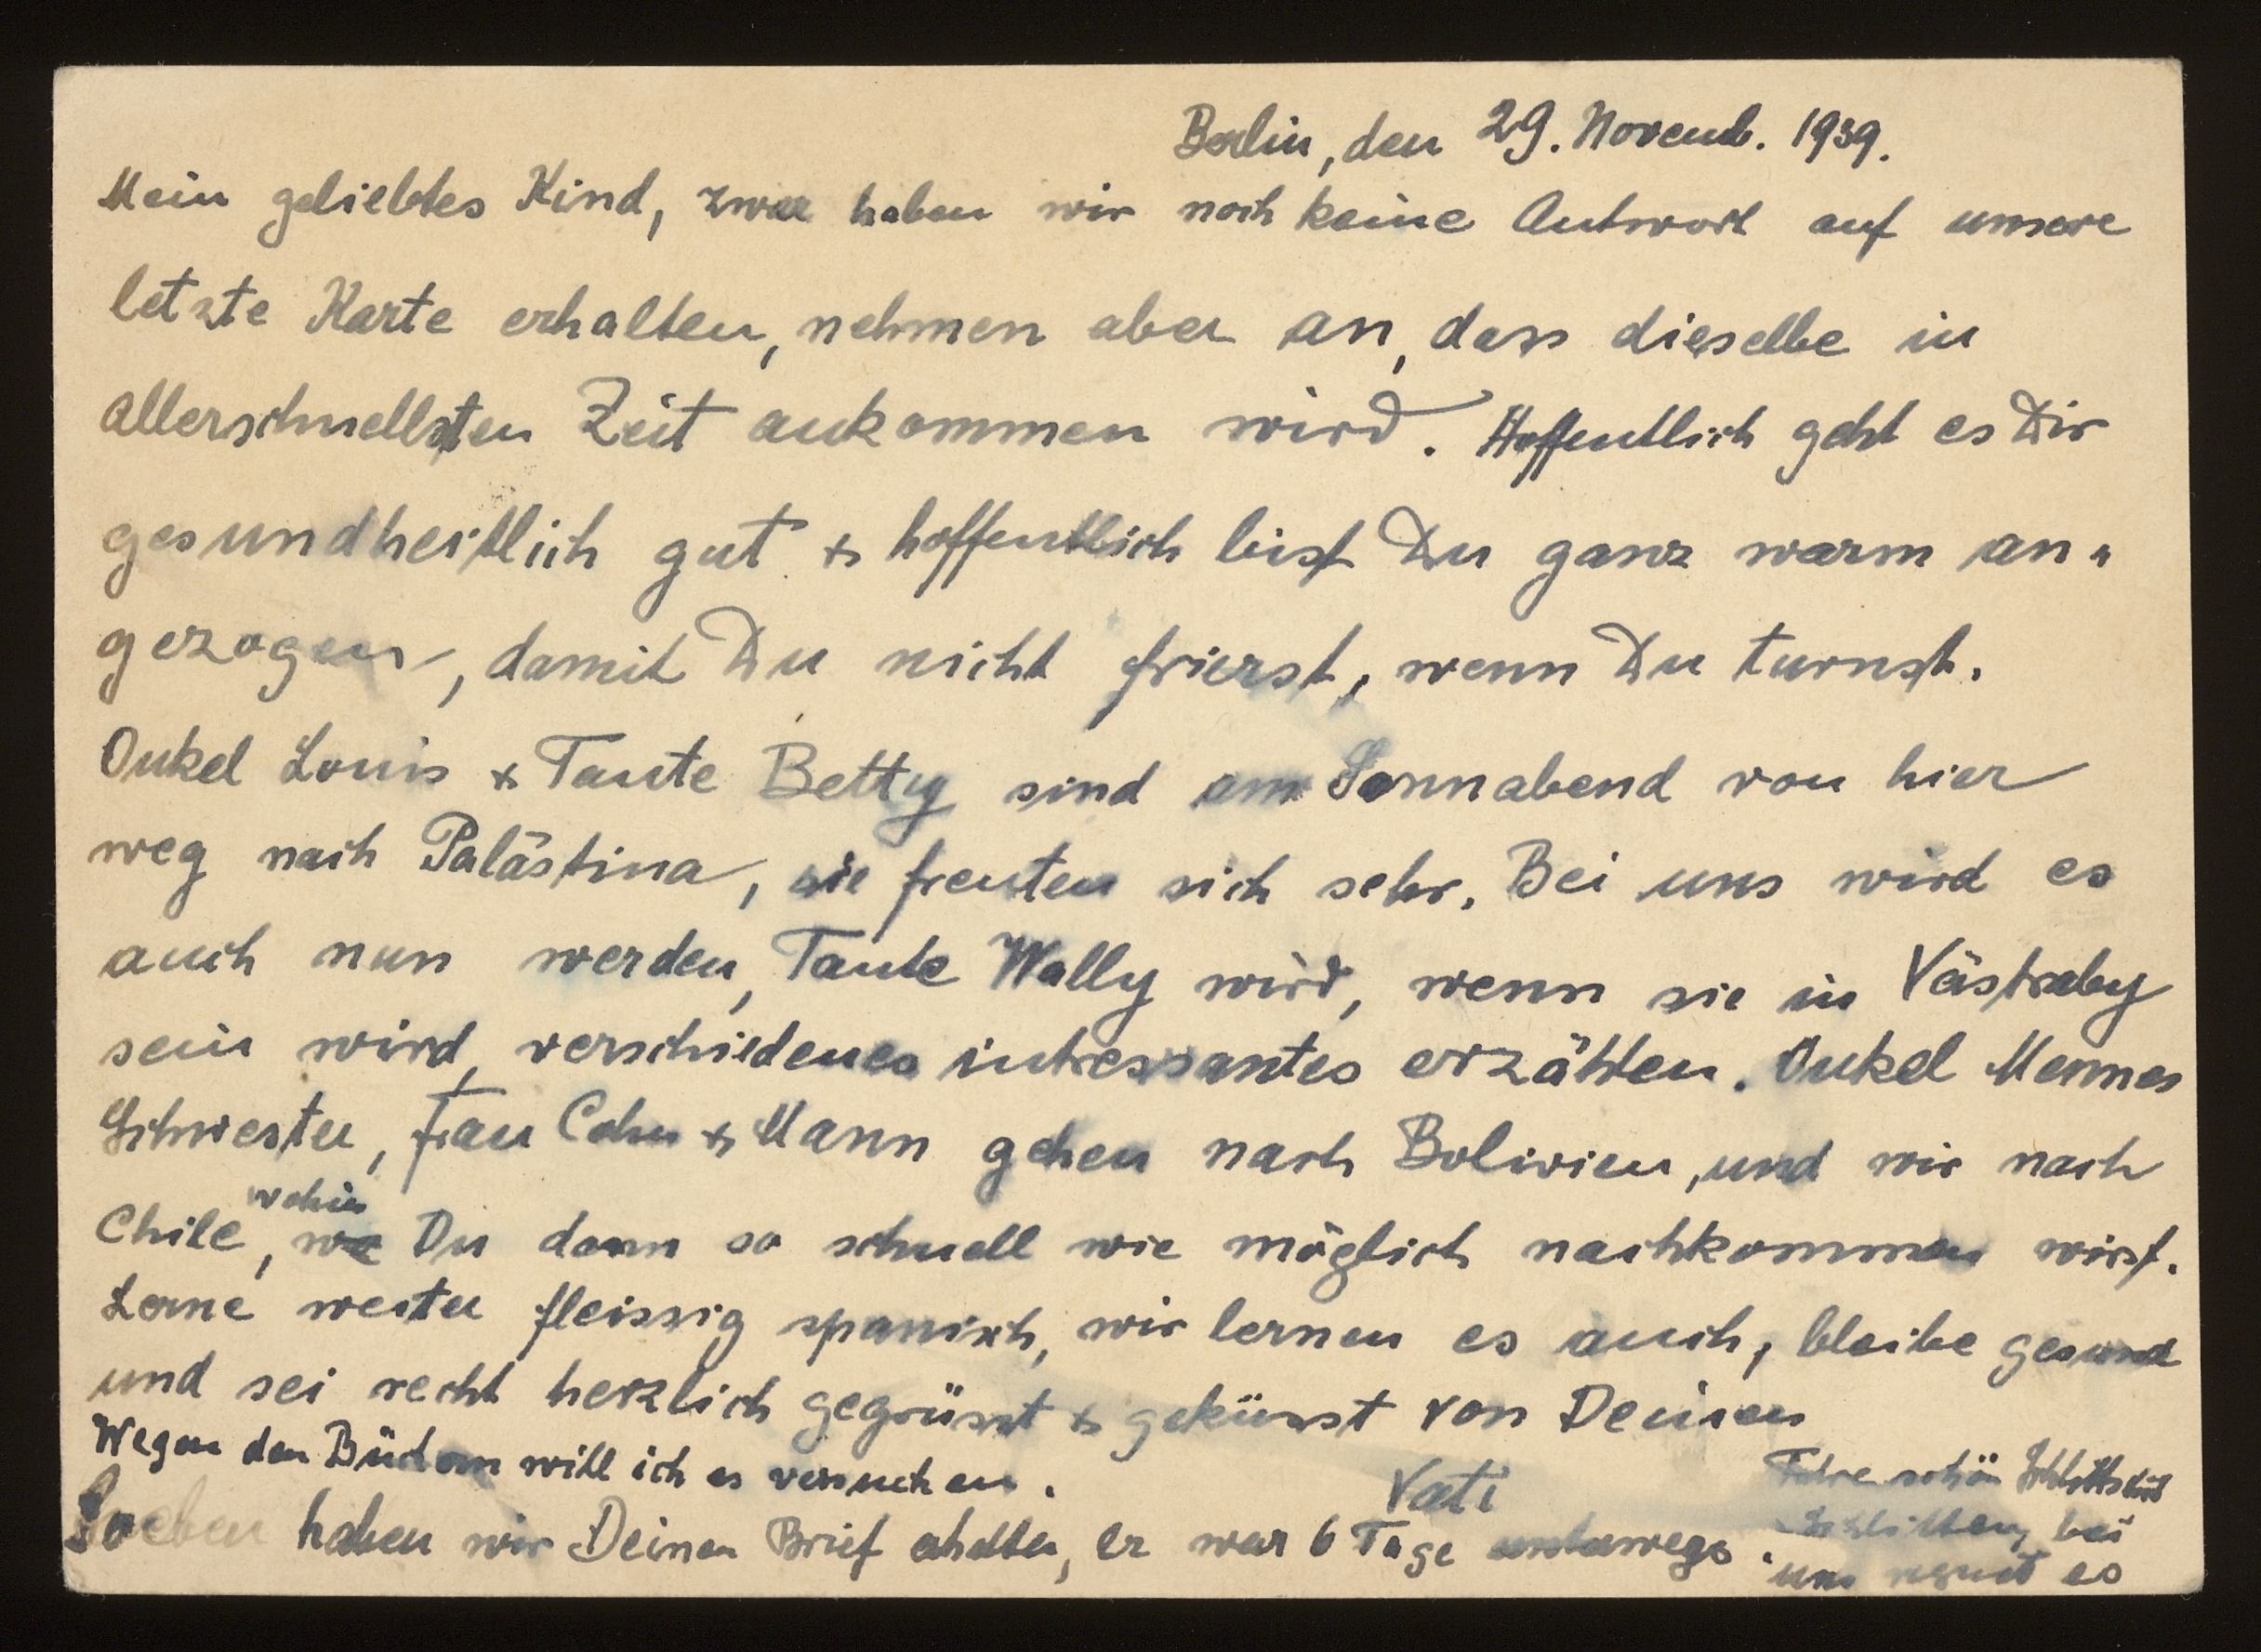 Berlin, den 29. Novemb. 1939.
Mein geliebtes Kind, zwar haben wir noch keine Antwort auf unsere
letzte Karte erhalten, nehmen aber an, dass dieselbe in
allerschnellsten Zeit ankommen wird. Hoffentlich geht es Dir
gesundheitlich gut & hoffentlich bist Du ganz warm an-
gezogen, damit Du nicht frierst, wenn Du turnst.
Onkel Louis & Tante Betty sind am Sonnabend von hier
weg nach Palästina, sie freuten sich sehr. Bei uns wird es
auch nun werden, Tante Wally wird, wenn sie in Västraby
sein wird, verschiedenes intressantes erzählen. Onkel Mennes
Schwester, Frau Cohn & Mann gehen nach Bolivien, und wir nach
wohin
Chile, wo Du dann so schnell wie möglich nachkommen wirst.
Lerne weiter fleissig spanisch, wir lernen es auch, bleibe gesund
und sei recht herzlich gegrüsst & geküsst von Deinem
Wegen den Büchern will ich es versuchen.
Vati
Soeben haben wir Deinen Brief erhalten, er war 6 Tage unterwegs.
Fahre schön
Schlitten, bei
uns regnet es